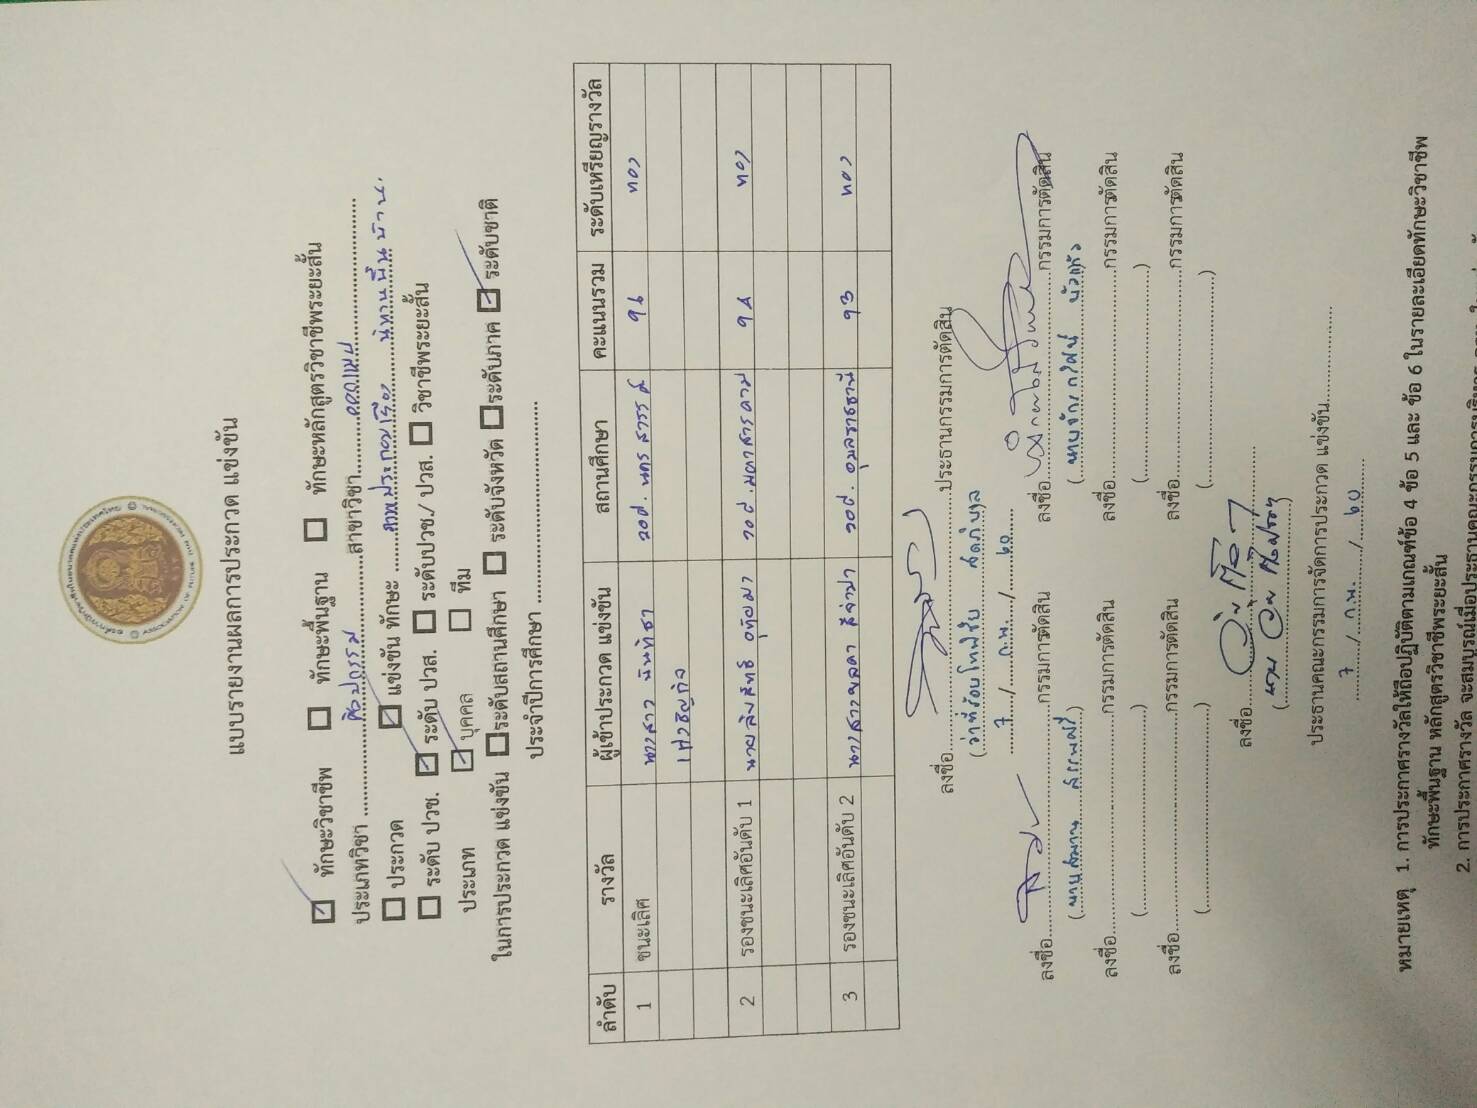 แบบรายงานผลการประกวด แข่งขัน
☑ ทักษะวิชาชีพ ☐ ทักษะพื้นฐาน ☐ ทักษะหลักสูตรวิชาชีพระยะสั้น
ประเภทวิชา ศิลปกรรม สาขาวิชา ออกแบบ
☐ ประกวด ☑ แข่งขัน ทักษะ ภาพประกอบเรื่อง นิทานพื้นบ้าน
☐ ระดับ ปวช. ☑ ระดับ ปวส. ☐ ระดับปวช./ ปวส. ☐ วิชาชีพระยะสั้น
ประเภท ☑ บุคคล ☐ ทีม
ในการประกวด แข่งขัน ☐ระดับสถานศึกษา ☐ ระดับจังหวัด ☐ระดับภาค ☑ ระดับชาติ
ประจำปีการศึกษา
ลำดับ รางวัล ผู้เข้าประกวด แข่งขัน สถานศึกษา คะแนนรวม ระดับเหรียญรางวัล
1 ชนะเลิศ นางสาว นันทิชา วอศ. นครสวรรค์ ๙๖ ทอง
2 รองชนะเลิศอันดับ 1 นายสิงสิทธิ์ วอศ. มหาสารคาม ๙๔ ทอง
3 รองชนะเลิศอันดับ 2 นางสาว วอศ. อุบลราชธานี ๙๓ ทอง
ลงชื่อ ประธานกรรมการตัดสิน
(ว่าที่ร้อยโทพิชัย สดภิบาล
7 / ก.พ. / ๖๐
ลงชื่อ กรรมการตัดสิน ลงชื่อ กรรมการตัดสิน
(นายสมาน สรรพศรี) (
ลงชื่อ กรรมการตัดสิน ลงชื่อ กรรมการตัดสิน
( ) ( )
ลงชื่อ กรรมการตัดสิน ลงชื่อ กรรมการตัดสิน
( ) ( )
ลงชื่อ
(นาย )
ประธานคณะกรรมการจัดการประกวด แข่งขัน
7 / ก.พ. / ๖๐
หมายเหตุ 1. การประกาศรางวัลให้ถือปฏิบัติตามเกณฑ์ข้อ 4 ข้อ 5 และ ข้อ 6 ในรายละเอียดทักษะวิชาชีพ
ทักษะพื้นฐาน หลักสูตรวิชาชีพระยะสั้น
2. การประกาศรางวัล จะสมบูรณ์เมื่อประธานคณะกรรมการบริหาร